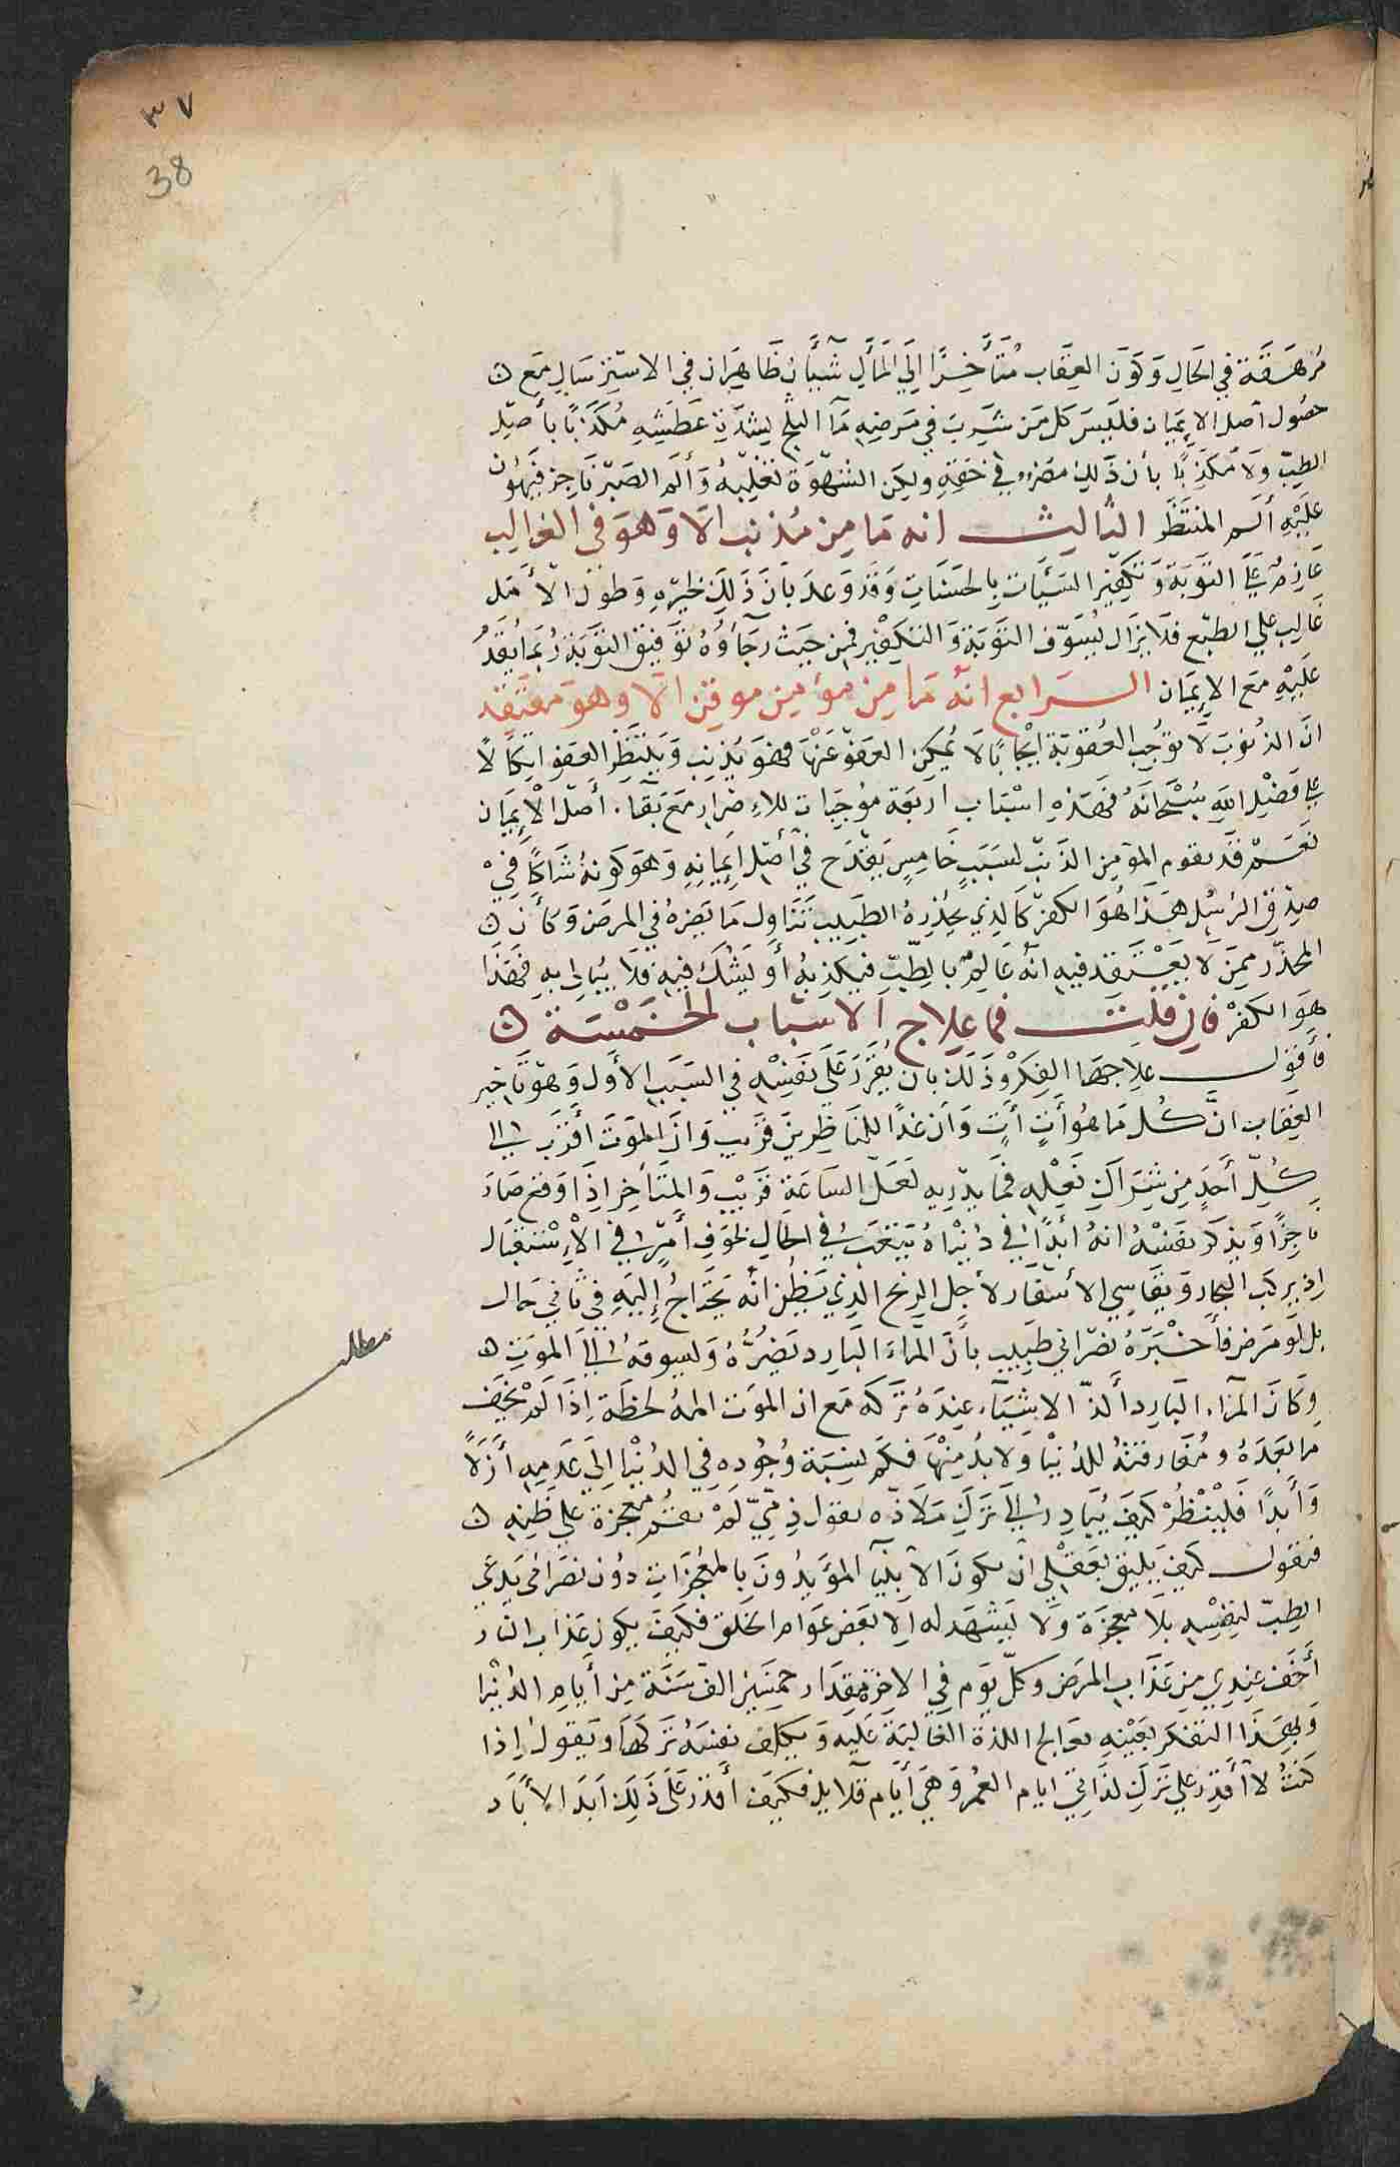 ٣٧
38
مرهقة في الحال وكون العقاب متأخرا إلي المآل شيبان ظاهران في الاسترسال مع
حصول أصل الإيمان فليس كل من شرب في مرضه مآ الثلج لشدة عطشه مكذبا بأصل
الطب ولا مكذبا بأن ذلك مضر في حقه ولكن الشهوة تغلبه وألم الصبر ناجز فيهون
عليه ألم المنتظر الثالث انه ما من مذنب الا وهو في الغالب
عازم على التوبة وتكفير السيئات بالحسنات وقد وعد بأن ذلك يجبره وطول الأمل
غالب علي الطبع فلا يزال يسوف التوبة والتكفير فمن حيث رجاؤه توفيق التوبة ربما يقدم
عليه مع الإيمان الرابع انه ما من مؤمن موقن الا وهو معتقد
ان الذنوب لا توجب العقوبة ايجابا لا يمكن العفو عنها فهو يذنب وينتظر العفو اتكالا
على فضل الله سبحانه فهذه اسباب اربعة موجبات للاصرار مع بقاء أصل الإيمان
نعم قد يقوم المؤمن الذنب لسبب خامس يقدح في أصل ايمانه وهو كونه شاكا في
صدق الرسل هذا هو الكفر كالذي يحذره الطبيب تناول ما يضره في المرض وكان
المحذر ممن لا يعتقد فيه انه عالم بالطب فيكذبه أو يشك فيه فلا يبالي به فهذا
هو الكفر فان قلت فما علاج الاسباب الخمسة
فأقول علاجها الفكر وذلك بان يقرر على نفسه في السبب الأول وهو تاخير
العقاب ان كل ما هو أت أت وأن غدا للناظرين قريب وان الموت أقرب الى
كل أحد من شراك نعله فما يدريه لعل الساعة قريب والمتأخر اذا وقع صار
ناجزا ويذكر نفسه انه أبدا في دنياه يتعب في الحال لخوف أمر في الإستقبال
اذ يركب البحار ويقاسي الأسفار لأجل الربح الذي يظن انه يحتاج إليه في ثاني حال
بل لو مرض فأخبره نصراني طبيب بأن الماء البارد يضره ويسوقه إلى الموت
وكان الماء البارد ألذ الاشياء عنده تركه مع ان الموت المه لحظة اذا لم يخف
ما بعده ومفارقته للدنيا ولا بد منها فكم نسبة وجوده في الدنيا إلي عدمه أزلا
وأبدا فلينظر كيف يبادر إلى ترك ملاذه بقول ذمي لم يقم معجزة على طبه
فيقول كيف يليق بعقلي ان يكون الانبيآ المؤيدون بالمعجزات دون نصراني يدعي
الطب لنفسه بلا معجزة ولا يشهد له إلا بعض عوام الخلق فكيف يكون عذاب النار
أخف عندي من عذاب المرض وكل يوم في الاخرة مقدار خمسين الف سنة من أيام الدنيا
وبهذا التفكر بعينه يعالج اللذة الغالبة عليه ويكلف نفسه تركها ويقول إذا
كنت لا أقدر علي ترك لذاتي ايام العمر وهي أيام قلائل فكيف أقدر على ذلك ابد الأباد
مطلب